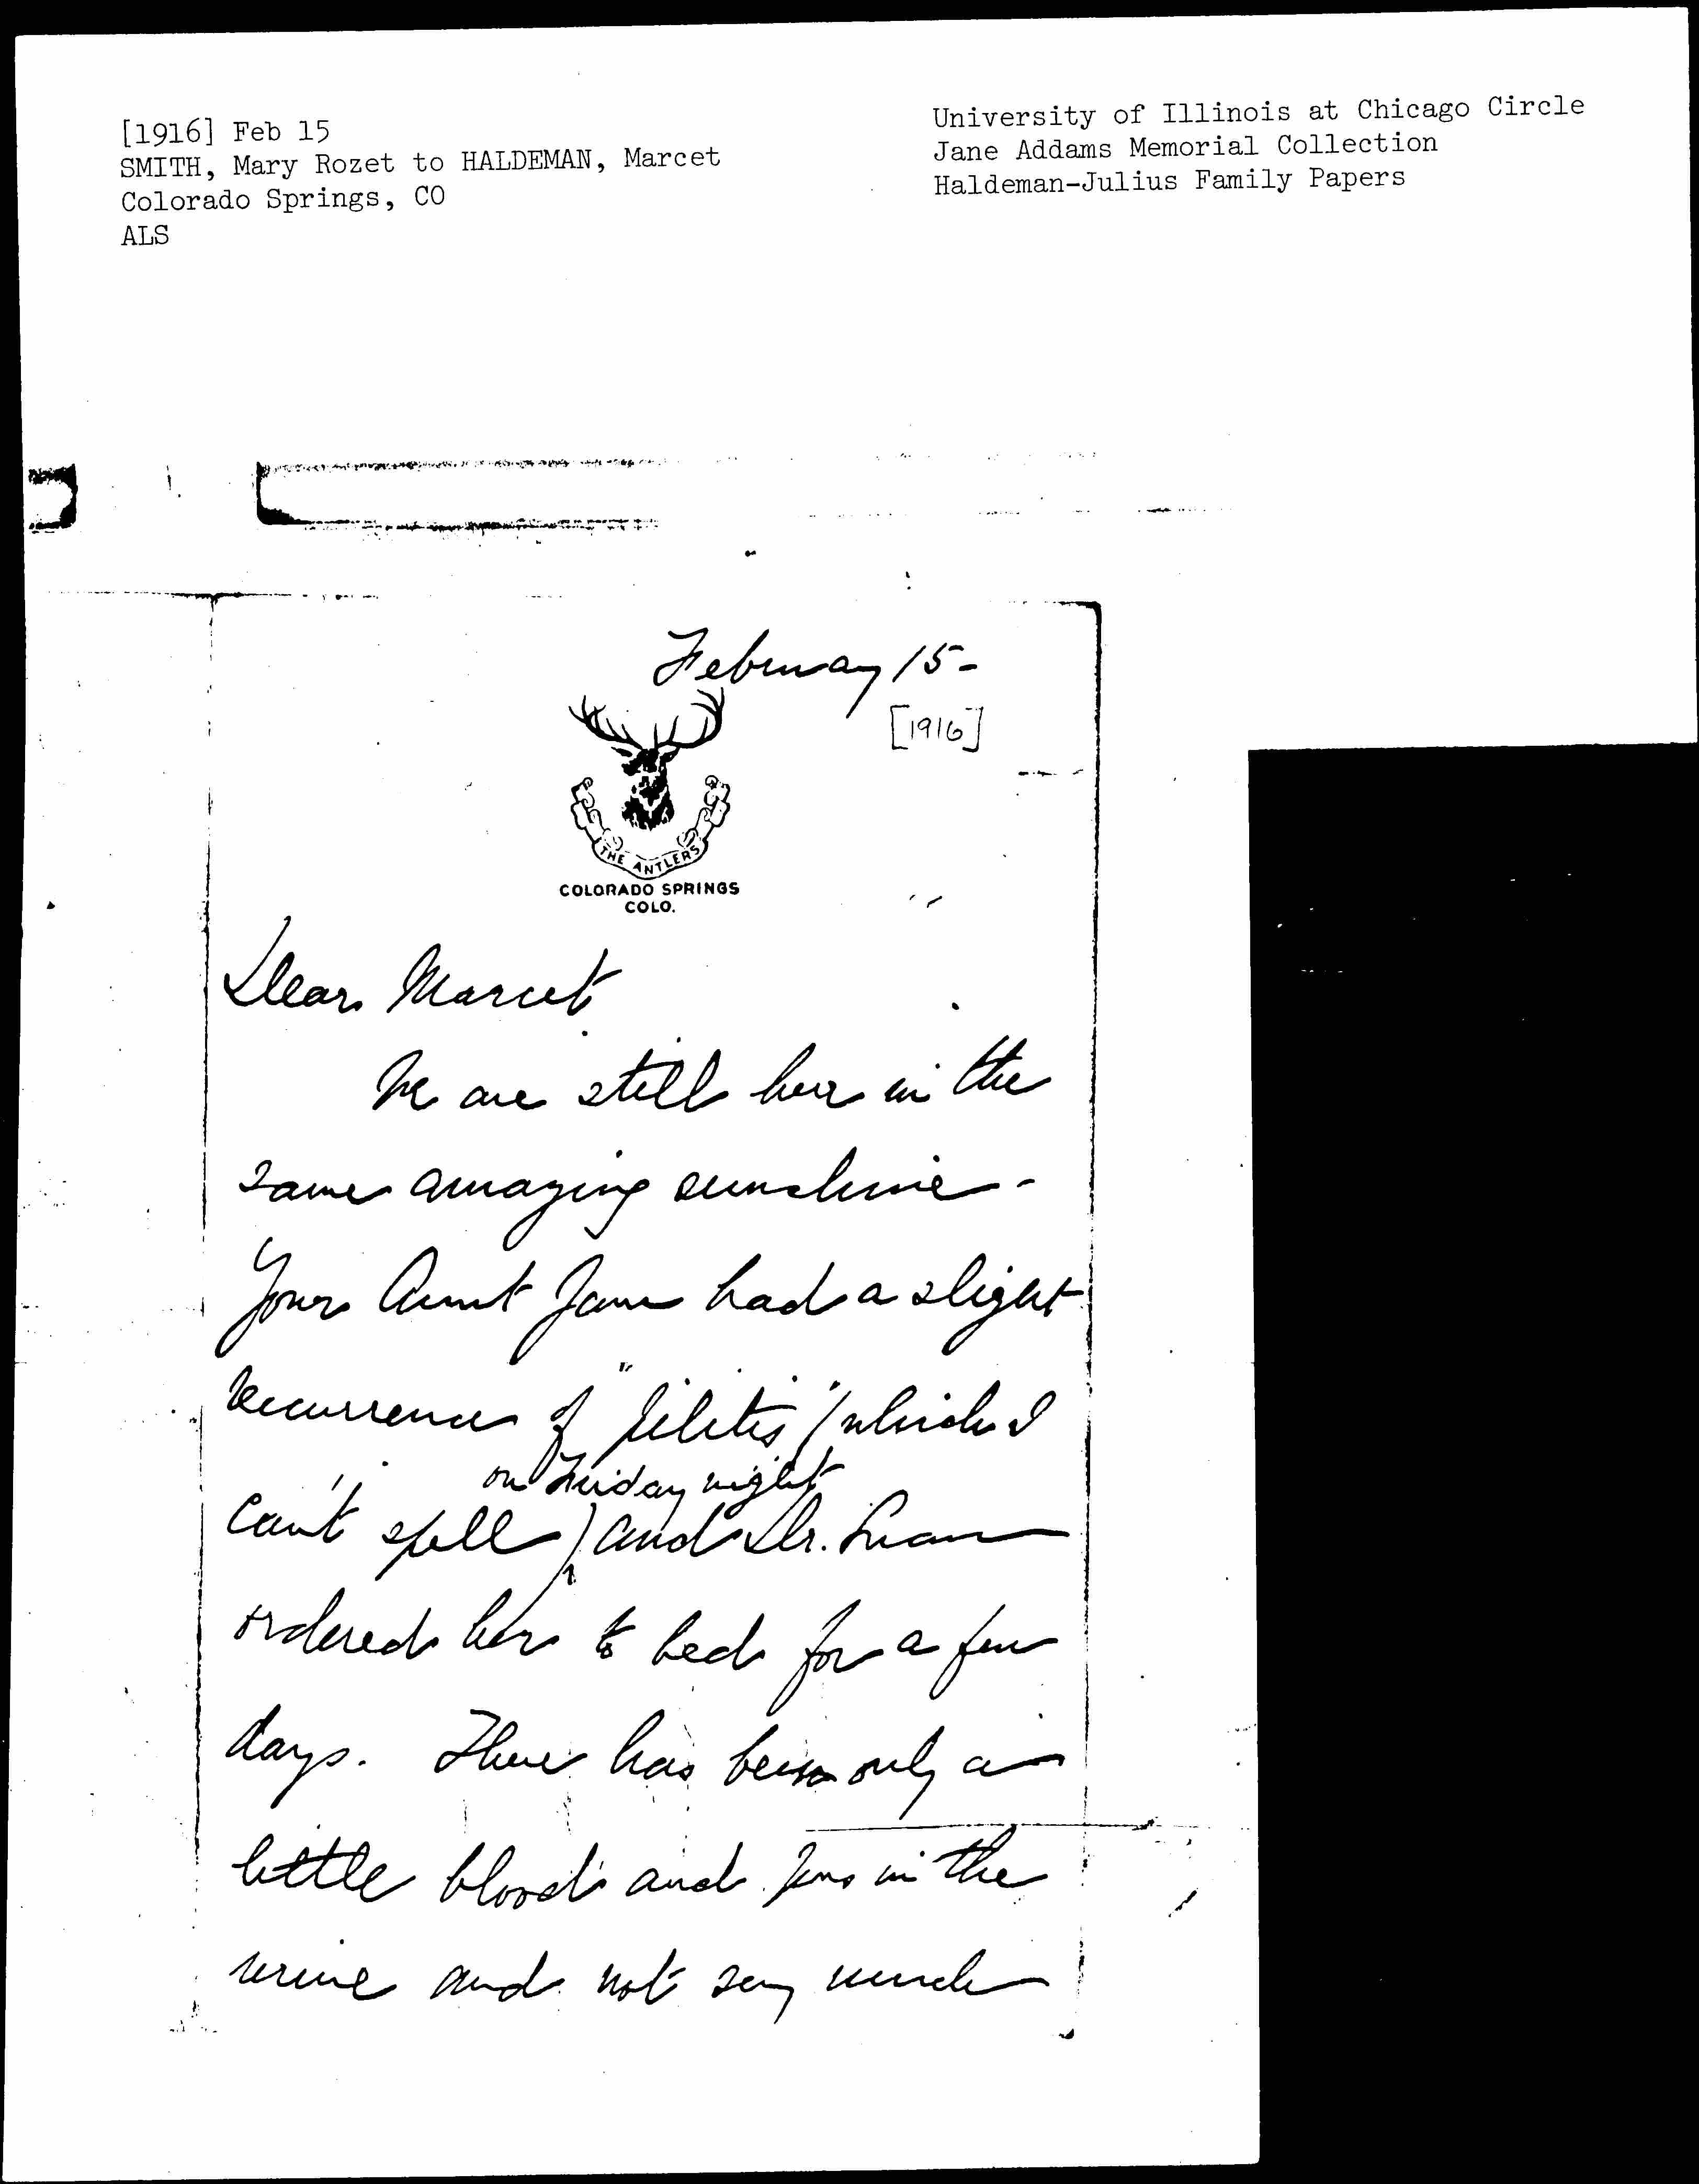 [1916] Feb 15
SMITH, Mary Rozet to HALDEMAN, Marcet
Colorado Springs, CO
ALS
University of Illinois at Chicago Circle
Jane Addams Memorial Collection
Haldeman-Julius Family Papers
February 15-
[1916]
THE ANTLERS
COLORADO SPRINGS
COLO.
Dear Marcet
We are still here in the
same amazing sunshine-
Your Aunt Jane had a slight
recurrence of "pilitis" (which I
on Friday night
can't spell) and Dr.
ordered her to bed for a few
days. There has been only a
little blood and pus in the
urine and not very much